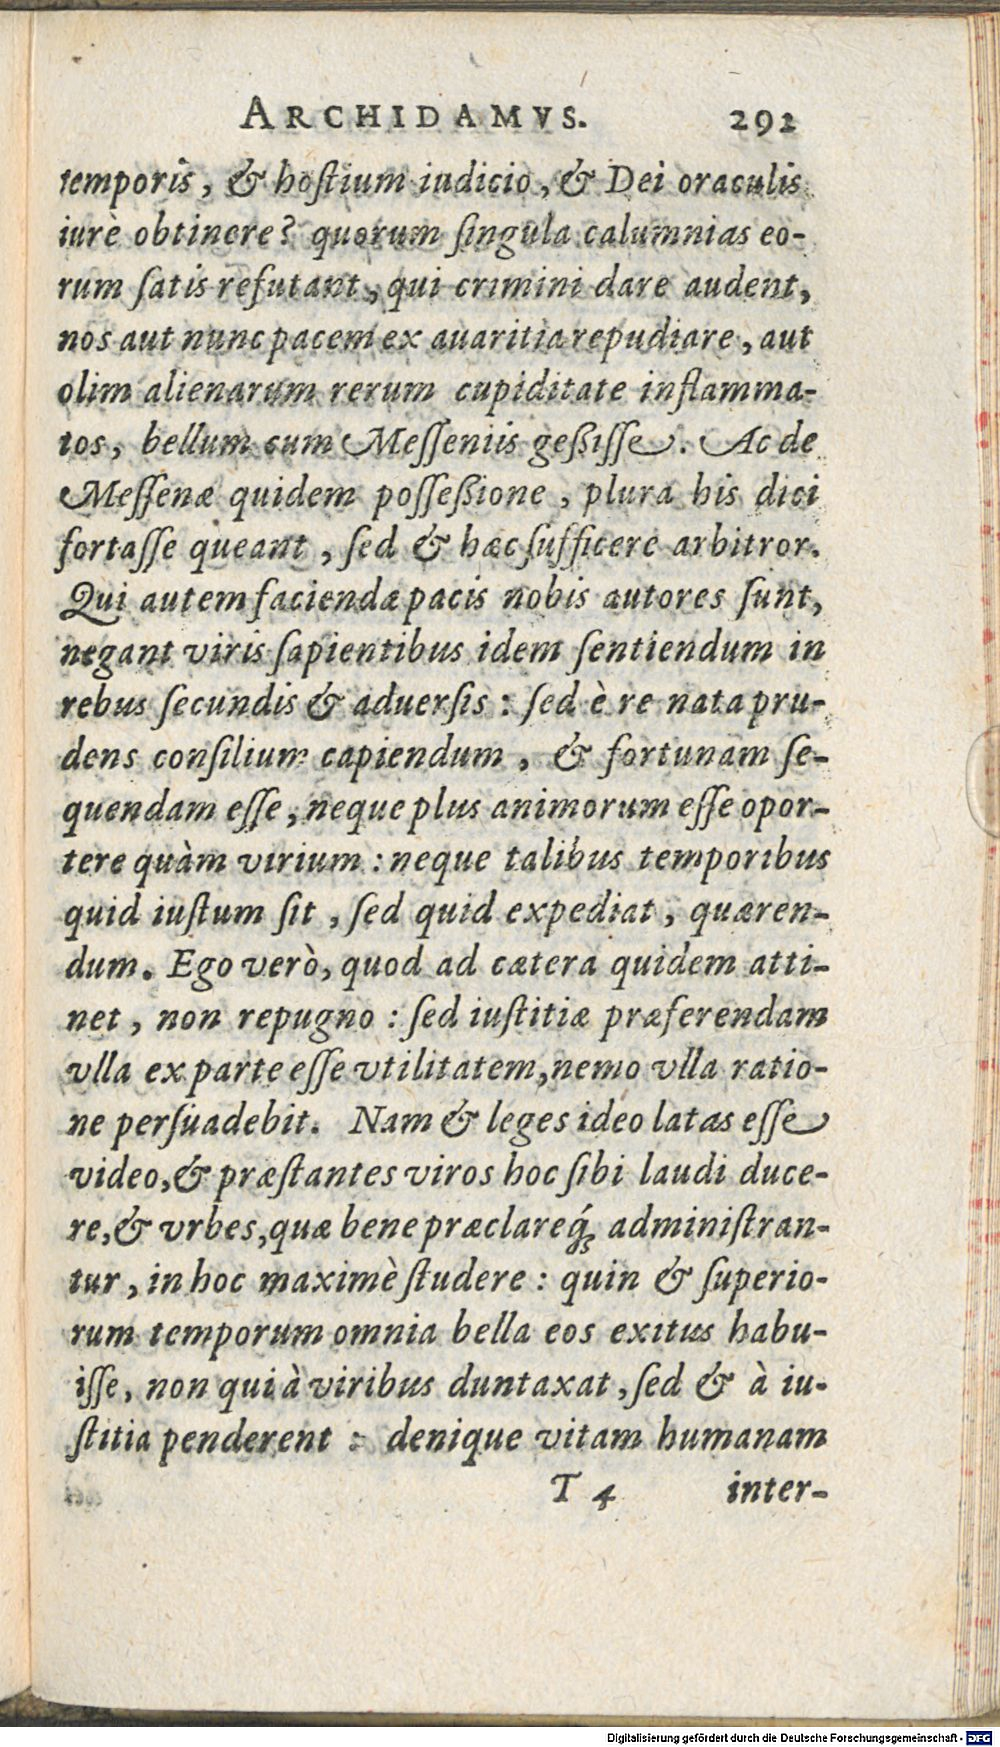 ARCHIDAMVS. 292
temporis, & hoſtium iudicio, & Dei oraculis
iurè obtinere? quorum ſingula calumnias eo-
rum ſatis refutant, qui crimini dare audent,
nos aut nunc pacem ex auaritia repudiare, aut
olim alienarum rerum cupiditate inflamma-
tos, bellum cum Meſſeniis geßiſſe. Ac de
Meſſenæ quidem poſſeßione, plura his dici
fortaſſe queant, ſed & hæc ſufficere arbitror.
Qui autem faciendæ pacis nobis autores ſunt,
negant viris ſapientibus idem ſentiendum in
rebus ſecundis & aduerſis: ſed è re nata pru-
dens conſilium capiendum, & fortunam ſe-
quendam eſſe, neque plus animorum eſſe opor-
tere quàm virium: neque talibus temporibus
quid iuſtum ſit, ſed quid expediat, quæren-
dum. Ego verò, quod ad cætera quidem atti-
net, non repugno: ſed iuſtitiæ præferendam
vlla ex parte eſſe vtilitatem, nemo vlla ratio-
ne perſuadebit. Nam & leges ideo latas eſſe
video, & præſtantes viros hoc ſibi laudi duce-
re, & vrbes, quæ bene præclareq́; adminiſtran-
tur, in hoc maximè ſtudere: quin & ſuperio-
rum temporum omnia bella eos exitus habu-
iſſe, non qui à viribus duntaxat, ſed & à iu-
ſtitia penderent: denique vitam humanam
T 4 inter-
Digitalisierung gefördert durch die Deutsche Forschungsgemeinschaft - DFG